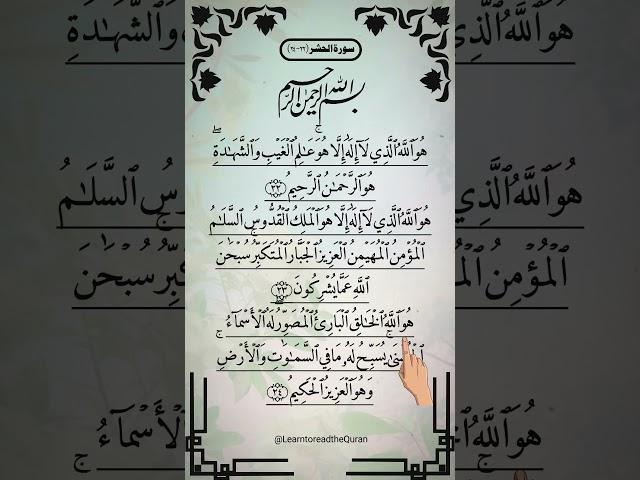 سورة الحشر (٢٢-٢٤)
بسم الله الرحمن الرحيم
هُوَ ٱللَّهُ ٱلَّذِي لَآ إِلَٰهَ إِلَّا هُوَ عَٰلِمُ ٱلْغَيْبِ وَٱلشَّهَٰدَةِ ۖ
هُوَ ٱلرَّحْمَٰنُ ٱلرَّحِيمُ ٢٢
هُوَ ٱللَّهُ ٱلَّذِي لَآ إِلَٰهَ إِلَّا هُوَ ٱلْمَلِكُ ٱلْقُدُّوسُ ٱلسَّلَٰمُ
ٱلْمُؤْمِنُ ٱلْمُهَيْمِنُ ٱلْعَزِيزُ ٱلْجَبَّارُ ٱلْمُتَكَبِّرُ ۚ سُبْحَٰنَ
ٱللَّهِ عَمَّا يُشْرِكُونَ ٢٣
هُوَ ٱللَّهُ ٱلْخَٰلِقُ ٱلْبَارِئُ ٱلْمُصَوِّرُ ۖ لَهُ ٱلْأَسْمَآءُ
ٱلْحُسْنَىٰ ۚ يُسَبِّحُ لَهُۥ مَا فِي ٱلسَّمَٰوَٰتِ وَٱلْأَرْضِ ۖ
وَهُوَ ٱلْعَزِيزُ ٱلْحَكِيمُ ٢٤
@LearntoreadtheQuran